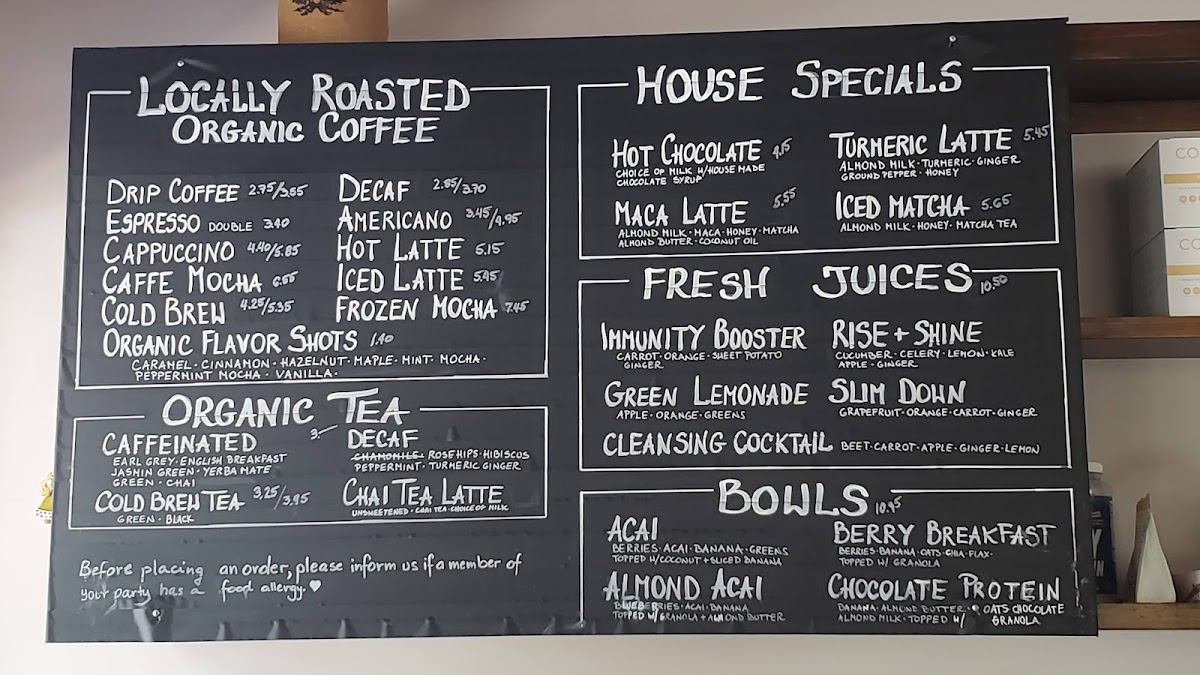 LOCALLY ROASTED
ORGANIC COFFEE
DRIP COFFEE 2.75/3.55
DECAF 2.85/3.70
ESPRESSO DOUBLE 3.40
AMERICANO 3.45/4.95
CAPPUCCINO 4.40/5.85
HOT LATTE 5.15
CAFFE MOCHA 6.55
ICED LATTE 5.45
COLD BREW 4.25/5.35
FROZEN MOCHA 7.45
ORGANIC FLAVOR SHOTS 1.40
CARAMEL · CINNAMON · HAZELNUT · MAPLE · MINT · MOCHA ·
PEPPERMINT MOCHA · VANILLA ·
ORGANIC TEA
3.-
CAFFEINATED
EARL GREY · ENGLISH BREAKFAST
JASMIN GREEN · YERBA MATE
GREEN · CHAI
DECAF
CHAMOMILE · ROSEHIPS · HIBISCUS
PEPPERMINT · TURMERIC GINGER
COLD BREW TEA 3,25/3.95
GREEN · BLACK
CHAI TEA LATTE
UNSWEETENED · CHAI TEA · CHOICE OF MILK
Before placing an order, please inform us if a member of
your party has a food allergy. ♥
HOUSE SPECIALS
HOT CHOCOLATE 4.15
CHOICE OF MILK W/HOUSE MADE
CHOCOLATE SYRUP
TURMERIC LATTE 5.45
ALMOND MILK · TURMERIC · GINGER
GROUND PEPPER · HONEY
MACA LATTE 5.55
ALMOND MILK · MACA · HONEY · MATCHA
ALMOND BUTTER · COCONUT OIL
ICED MATCHA 5.65
ALMOND MILK · HONEY · MATCHA TEA
FRESH JUICES 10.50
IMMUNITY BOOSTER
CARROT · ORANGE · SWEET POTATO
GINGER
RISE + SHINE
CUCUMBER · CELERY · LEMON · KALE
APPLE · GINGER
GREEN LEMONADE
APPLE · ORANGE · GREENS
SLIM DOWN
GRAPEFRUIT · ORANGE · CARROT · GINGER
CLEANSING COCKTAIL BEET · CARROT · APPLE · GINGER · LEMON
BOWLS 10.95
ACAI
BERRIES · ACAI · BANANA · GREENS
TOPPED W/COCONUT + SLICED BANANA
BERRY BREAKFAST
BERRIES · BANANA · OATS · CHIA · FLAX ·
TOPPED W/ GRANOLA
ALMOND ACAI
BLUEBERRIES · ACAI · BANANA
TOPPED W/GRANOLA + ALMOND BUTTER
CHOCOLATE PROTEIN
BANANA · ALMOND BUTTER · OATS CHOCOLATE
ALMOND MILK · TOPPED W/ GRANOLA
CO
CO